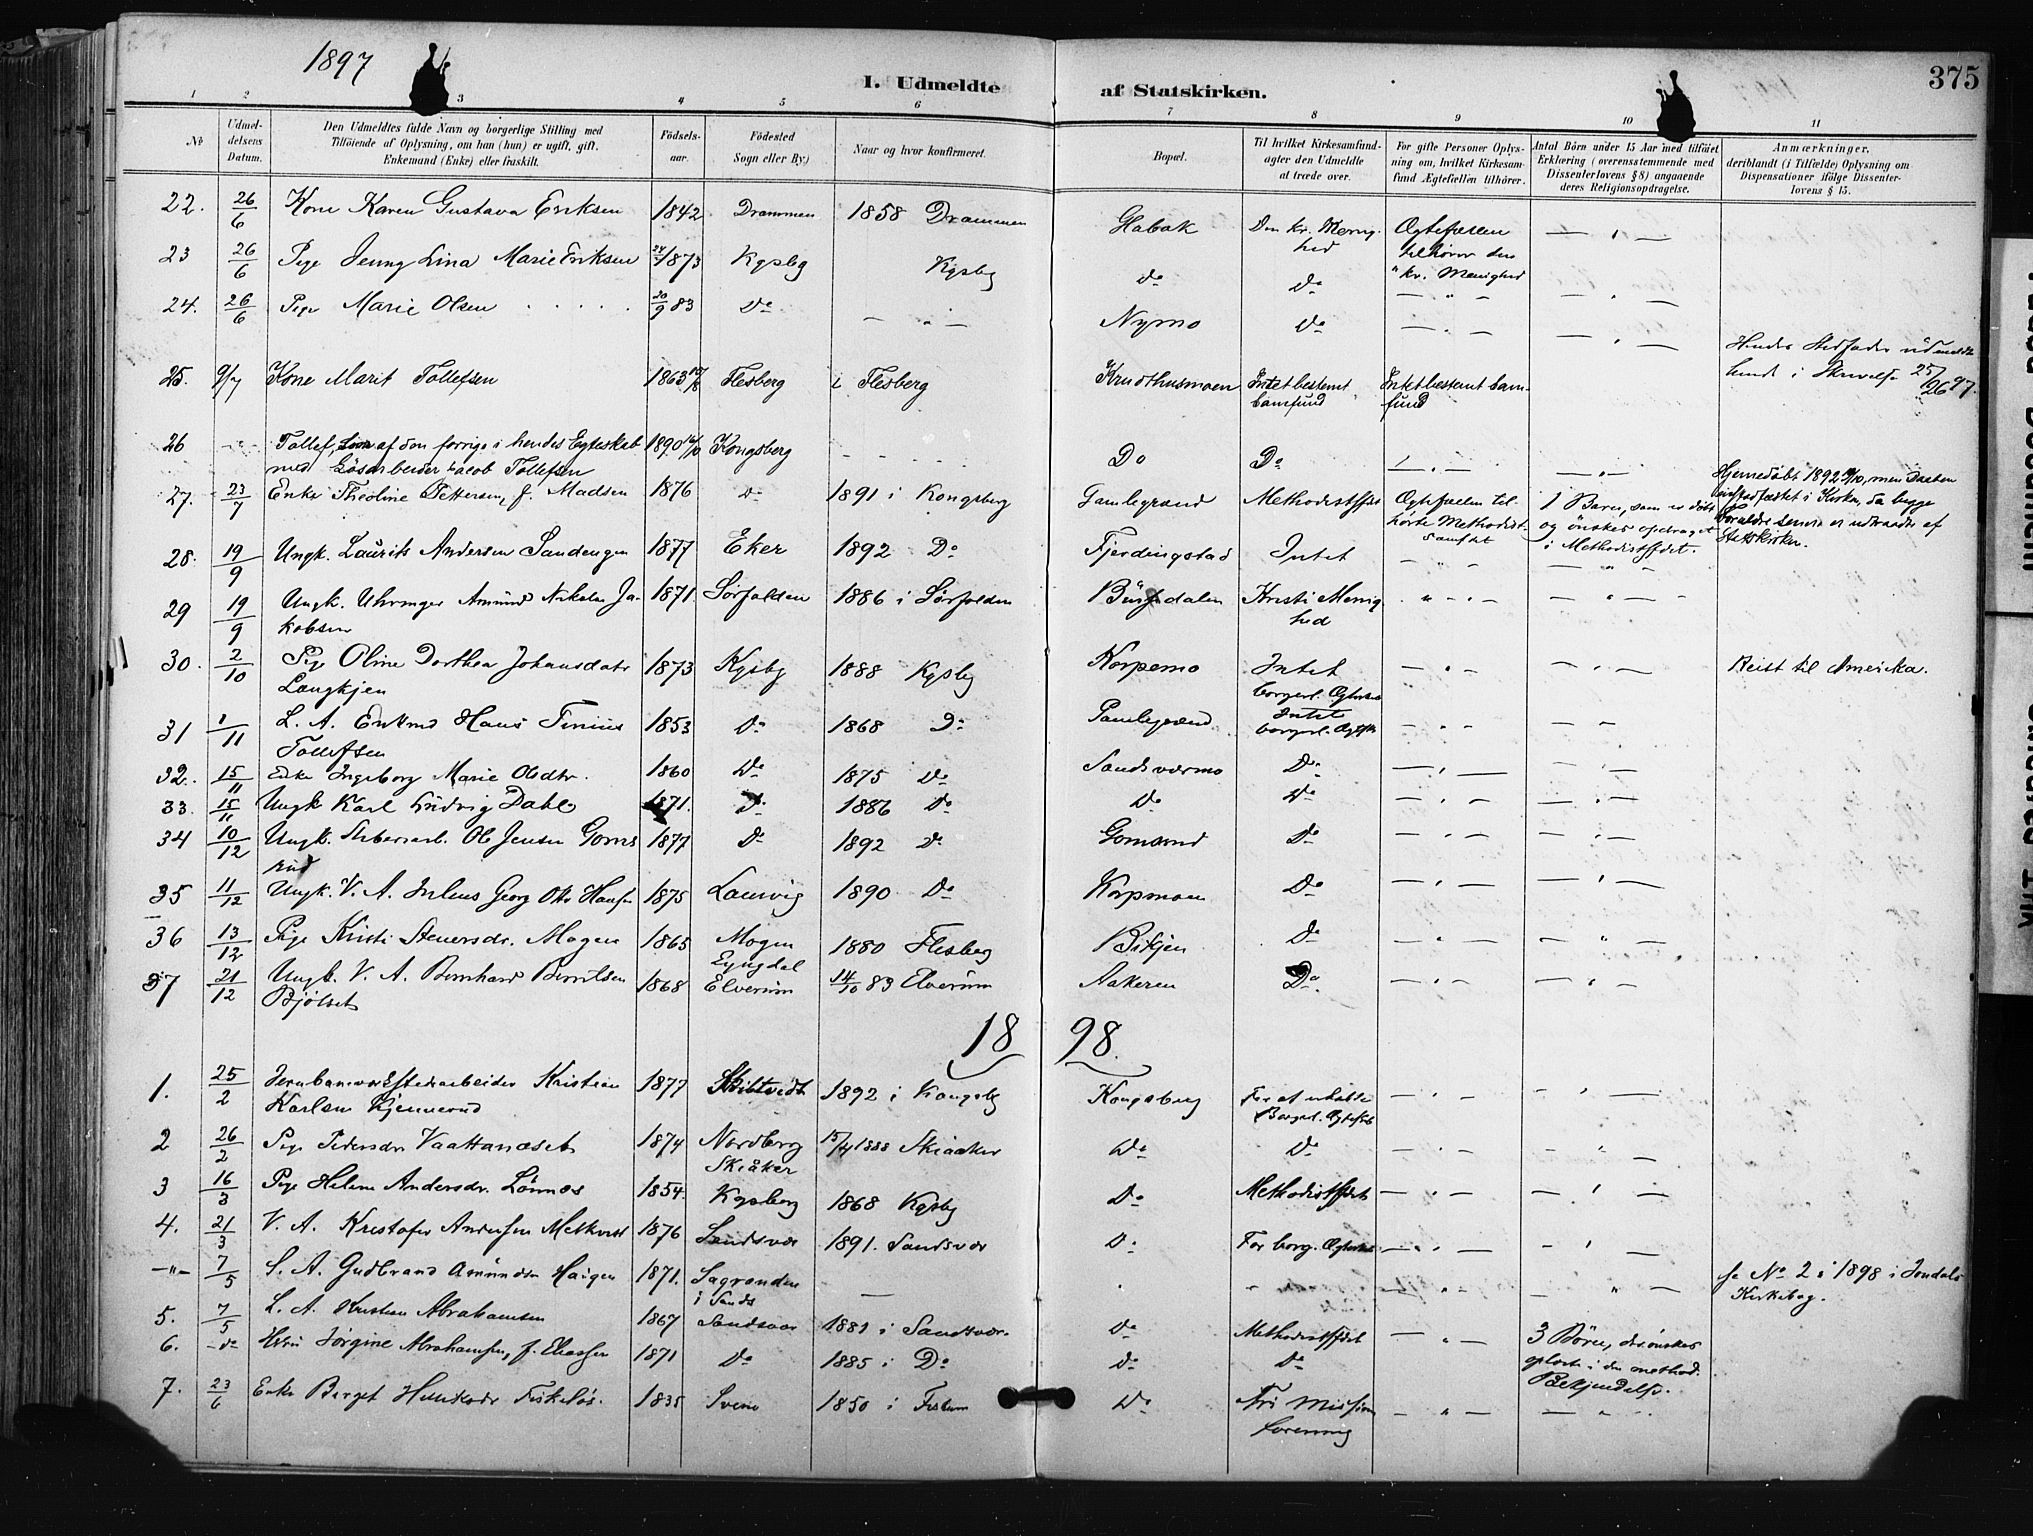 1897
I. Udmeldte af Statskirken.
375
1 2 3 4 5 6 7 8 9 10 11
No
Udmeldelsens Datum.
Den Udmeldtes fulde Navn og borgerlige Stilling med
Tilföiende af Oplysning, om han (hun) er ugift, gift,
Enkemand (Enke) eller fraskilt.
Födselsaar.
Födested
Sogn eller By.)
Naar og hvor konfirmeret.
Bopæl.
Til hvilket Kirkesamfund
agter den Udmeldte
at træde over.
For gifte Personer Oplys-
ning om, hvilket Kirkesam-
fund Ægtefællen tilhörer.
Antal Börn under 15 Aar med tilföiet
Erklæring (overensstemmende med
Dissenterlovens § 8) angaaende
deres Religionsopdragelse.
Anmærkninger,
deriblandt (i Tilfælde) Oplysning om
Dispensationer ifölge Dissenter-
lovens § 15.
22. 26/6 Kone Karen Gustava Eriksen 1842 Drammen 1858 Drammen Habak Den kr. Menighed Ægtefællen tilhörer den kr. Menighed
23 26/6 Pige Jenny Lina Marie Eriksen 1873 Kgsbg Kgsbg Do Do
24. 26/6 Pige Marie Olsen 20/9 83 Do Nymo Do
25. 9/7 Kone Marit Tollefsen 1863 Flesberg i Flesberg Kruthusmoen Intet bestemt Samfund Intet bestemt Samfund
26 Tollef, Søn af den forrige i hendes Egteskab
med Løsarbeider Jacob Tollefsen 1890 Kongsberg Do Do
27. 23/7 Enke Theoline Pettersen, f. Madsen 1876 Do 1891 i Kongsberg Gamlegrænd Methodistsfdet Ægtefællen tilhörte Methodistsamfdet 1 Barn, som er döbt og önskes opdraget i Methodistsfdet.
28. 19/9 Ungk. Laurits Andersen Sandengen 1877 Eker 1892 Do Fjerdingstad Intet
29 19/9 Ungk. Uhrmager Amund Nikolai Jakobsen 1871. Sørfolden 1886 i Sørfolden Kristi Menighed
30. 2/10 Pige Oline Dorthea Johansdatr Langkjen 1873 Kgsbg 1888 Kgsbg Korpemo Intet borgerl. Ægtesk. Reist til Amerika.
31 1/11 L. A. Enkmd Hans Tinius Tollefsen 1853 Do 1868 Do Gamlegrænd Intet borgerl. Ægtesk
32. 15/11 Enke Ingeborg Marie Olsdtr. 1860 Do 1875 Do Sandsværmo Do
33. 15/11 Ungk Karl Ludvig Dahl 1871. Do 1886 Do Do Do
34 10/12 Ungk. Ole Jensen Gomsrud 1877 Do 1892 Do Gomsrud Do
35 11/12 Ungk. V. A. Julius Georg Otto Hansen 1875 Laurvig 1890 Do Korpmoen Do
36 13/12 Pige Kristi Stenersdr. Mogen 1865 Mogen Lyngdal 1880 Flesberg Do
37 21/12 Ungk. V. A. Bernhard Berntsen Bjölset 1868 Elverum 14/10 83 Elverum Aakeren Do.
1898.
1. 25/2 Kristian Karlsen Kjennerud 1877 1892 i Kongsbg Kongsberg For at erholde Borgerl. Ægtesk
2 26/2 Pige Pedersdr Vaattanæset 1874 Nordberg Skiåker 1888 Skiaaker Do Do
3 16/3 Pige Helene Andersdr. Lönnæs 1854. Kgsberg 1868 Kgsbg Do Methodistsfdet
4. 21/3 V. A. Kristofer Andersen 1876 Sandsvær 1891. Sandsvær Do For borg. Ægtesk
7/5 L. A. Gudbrand Amundsen Haugen 1871. Sagranden i Sands se No 2 i 1898 i Jondals Kirkebog.
5. 7/5 L. A. Kristian Abrahamsen 1867 Sandsvær 1881 i Sandsvær. Do Methodistsfdet 3 Börn, der önskes oplært i den method. Bekjendelse.
6. do Jörgine Abrahamsen, f. Eliassen 1871 Do 1885 i Do Do Do
7. 23/6 Enke Berget 1835 Svene 1850 i Do Fri Missions forening